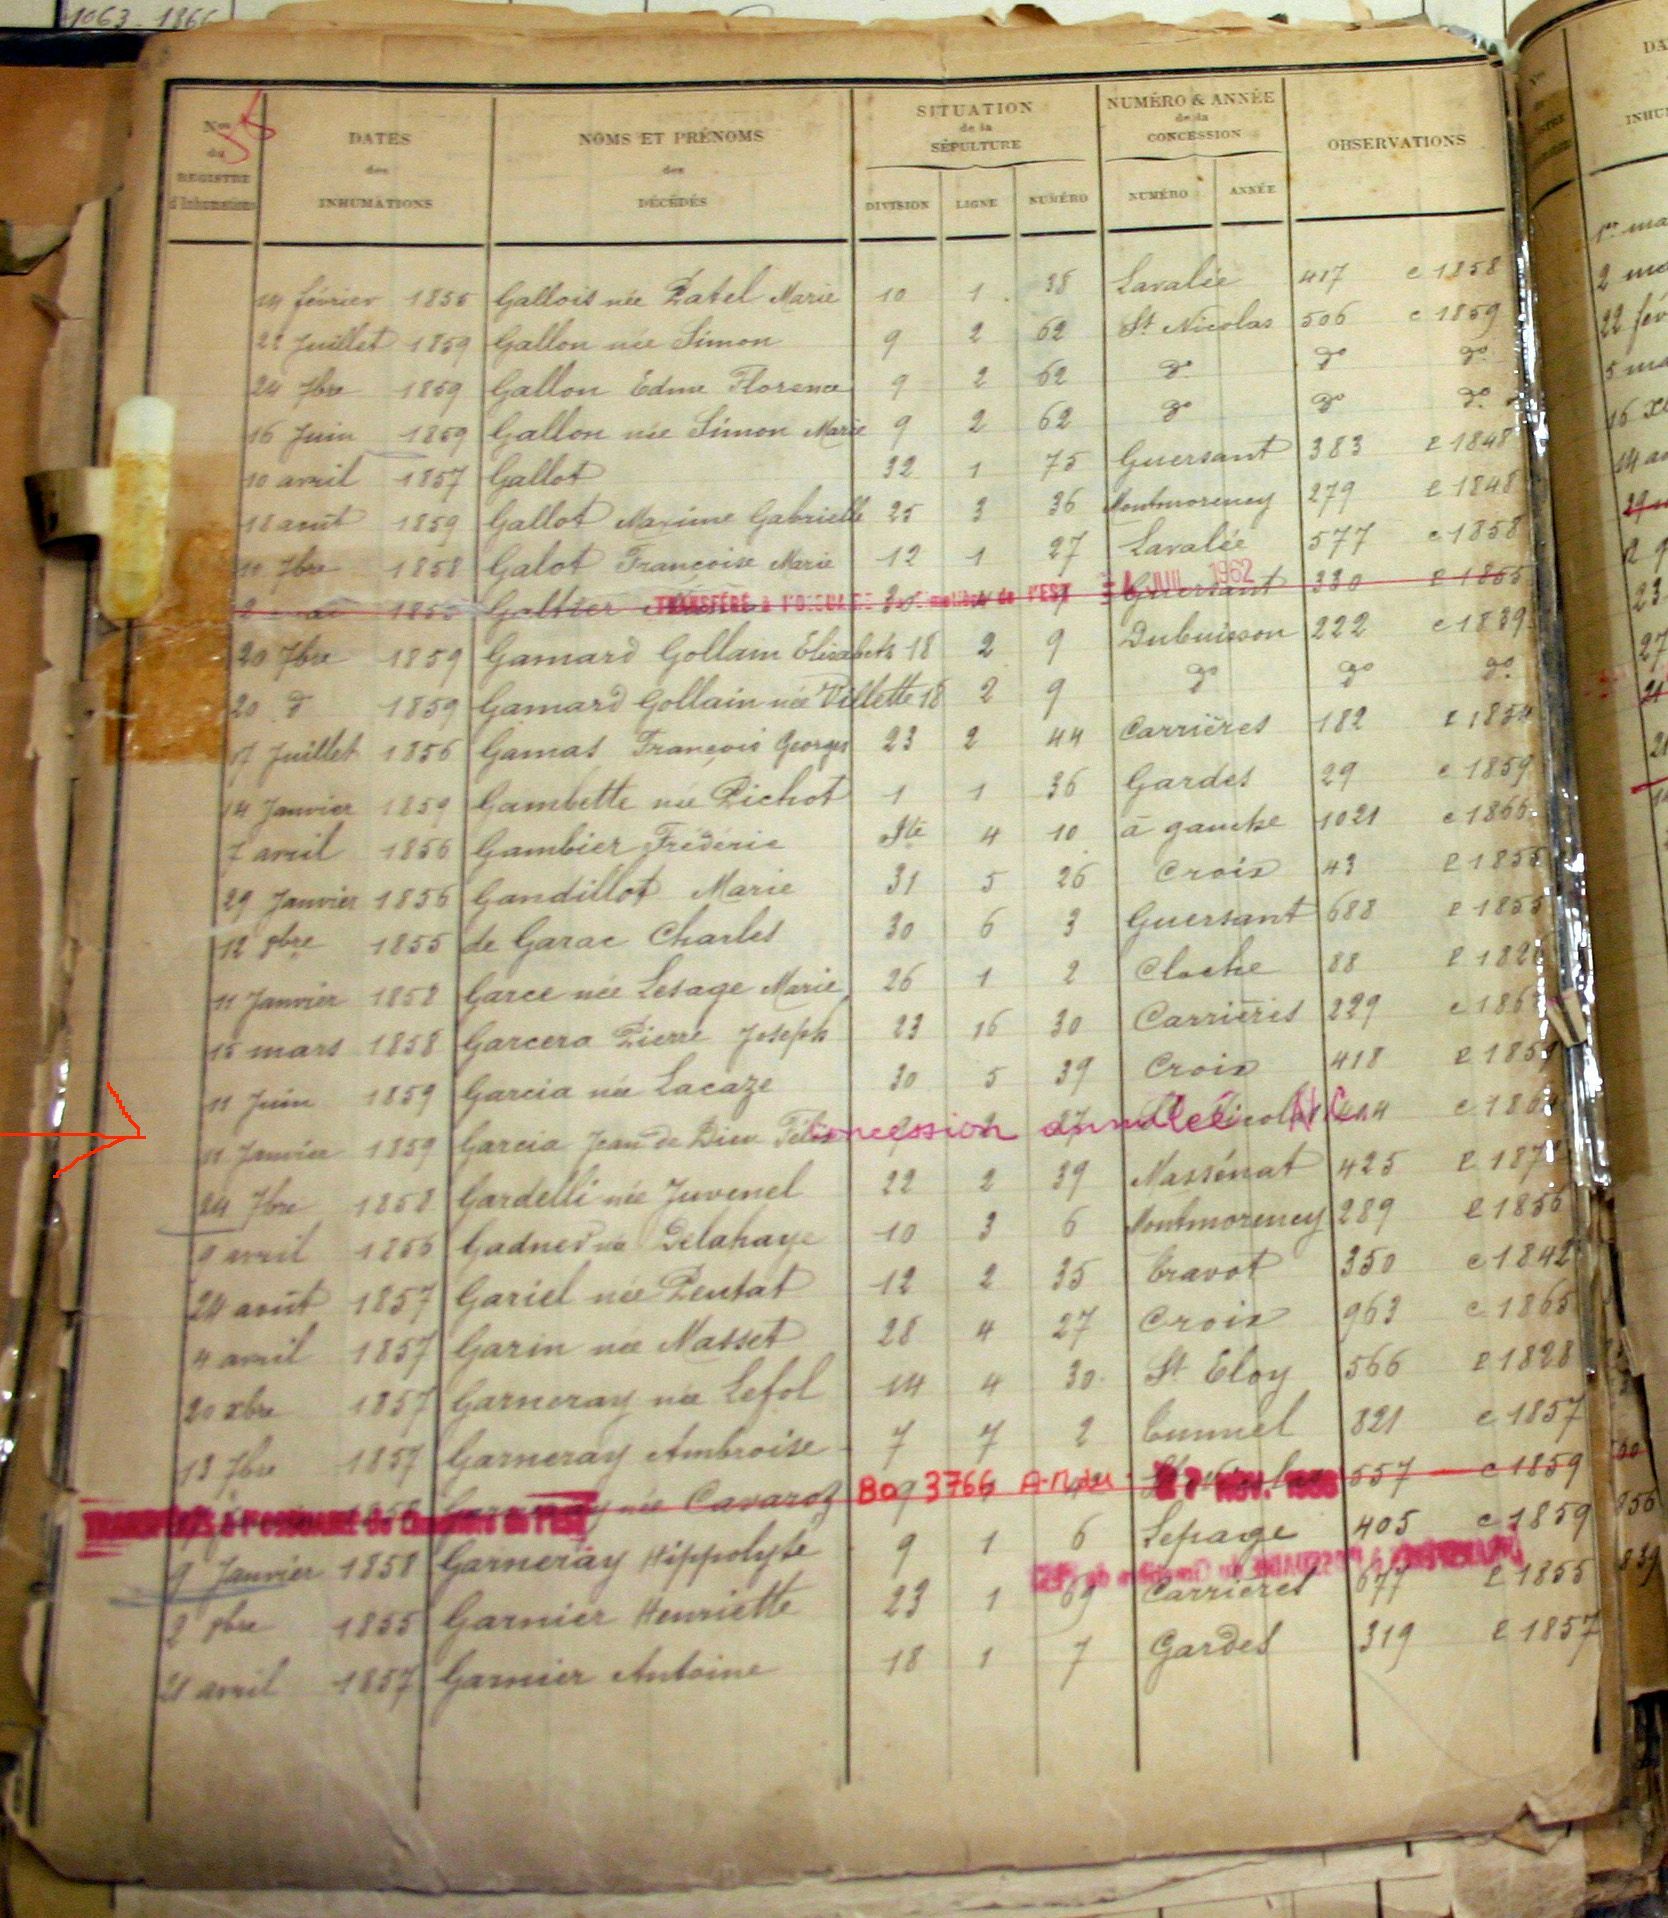 1063 1866
Nos du REGISTRE d'Inhumations
DATES des INHUMATIONS
NOMS ET PRÉNOMS des DÉCÉDÉS
SITUATION de la SÉPULTURE
DIVISION LIGNE NUMÉRO
NUMÉRO & ANNÉE de la CONCESSION
NUMÉRO ANNÉE
OBSERVATIONS
14 février 1856 Gallois née Patel Marie 10 1 38 Lavalée 417 c 1858
22 Juillet 1859 Gallon née Simon 9 2 62 St Nicolas 506 c 1859
24 7bre 1859 Gallon Edme Florence 9 2 62 do do do
16 Juin 1859 Gallon née Simon Marie 9 2 62 do do do
10 avril 1857 Gallot 32 1 75 Guersant 383 P 1848
18 août 1859 Gallot Maxime Gabrielle 25 3 36 Montmorency 279 P 1848
10 7bre 1858 Galot Françoise Marie 12 1 27 Lavalée 577 c 1858
1855 Galtier TRANSFÉRÉ à l'OSSUAIRE du Cimetière de l'EST JUIL 1962 Guersant 330 P 1855
20 7bre 1859 Gamard Gollain Elisabeth 18 2 9 Dubuisson 222 c 1839
20 do 1859 Gamard Gollain née Villette 18 2 9 do do do
17 Juillet 1856 Gamas François Georges 23 2 44 Carrières 182 P 1854
14 Janvier 1859 Gambette née Pichot 1 1 36 Gardes 29 c 1859
7 avril 1856 Gambier Frédéric 4 10 à gauche 1021 c 1866
29 Janvier 1856 Gandillot Marie 31 5 26 Croix 43 P 1855
12 8bre 1855 de Garac Charles 30 6 3 Guersant 688 P 1855
11 Janvier 1858 Garce née Lesage Marie 26 1 2 Cloche 88 P 182
15 mars 1858 Garcera Pierre Joseph 23 16 30 Carrières 229 c 186
11 Juin 1859 Garcia née Lacaze 30 5 39 Croix 418 P 1851
11 Janvier 1859 Garcia Jean de Dieu Félix concession annulée N.C. c 186
24 7bre 1858 Gardelli née Juvenel 22 2 39 Massénat 425 P 187
9 avril 1856 Gadned née Delahaye 10 3 6 Montmorency 289 P 1856
24 août 1857 Gariel née Pentat 12 2 35 Cravot 350 c 1842
4 avril 1857 Garin née Masset 28 4 27 Croix 963 c 1865
20 xbre 1857 Garneray née Lefol 14 4 30 St Eloy 566 P 1828
13 7bre 1857 Garneray Ambroise 7 7 2 Tunnel 821 c 1857
TRANSFÉRÉ à l'OSSUAIRE du Cimetière de l'EST née Cavaroz Bo 3766 A-N du NOV. 557 c 1859
9 Janvier 1858 Garneray Hippolyte 9 1 6 Lepage 405 c 1859
2 8bre 1855 Garnier Henriette 23 1 69 Carrières 677 P 1855
21 avril 1857 Garnier Antoine 18 1 7 Gardes 319 P 1857